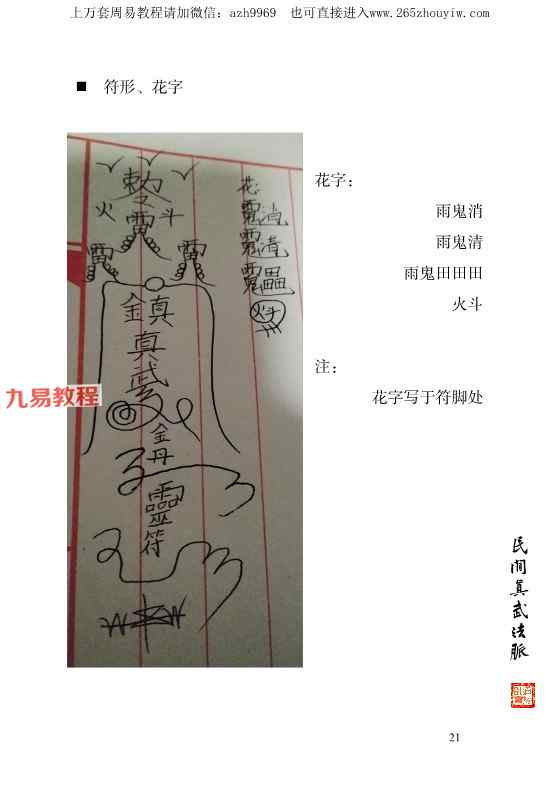 上万套周易教程请加微信：azh9969 也可直接进入www.265zhouyiw.com
■ 符形、花字
敕
火 雷 斗
雷 雷
鎮真
真
武
金
丹
靈
符
花
消
清
火斗
九易教程
花字：
雨鬼消
雨鬼清
雨鬼田田田
火斗
注：
花字写于符脚处
民间真武法脉
21